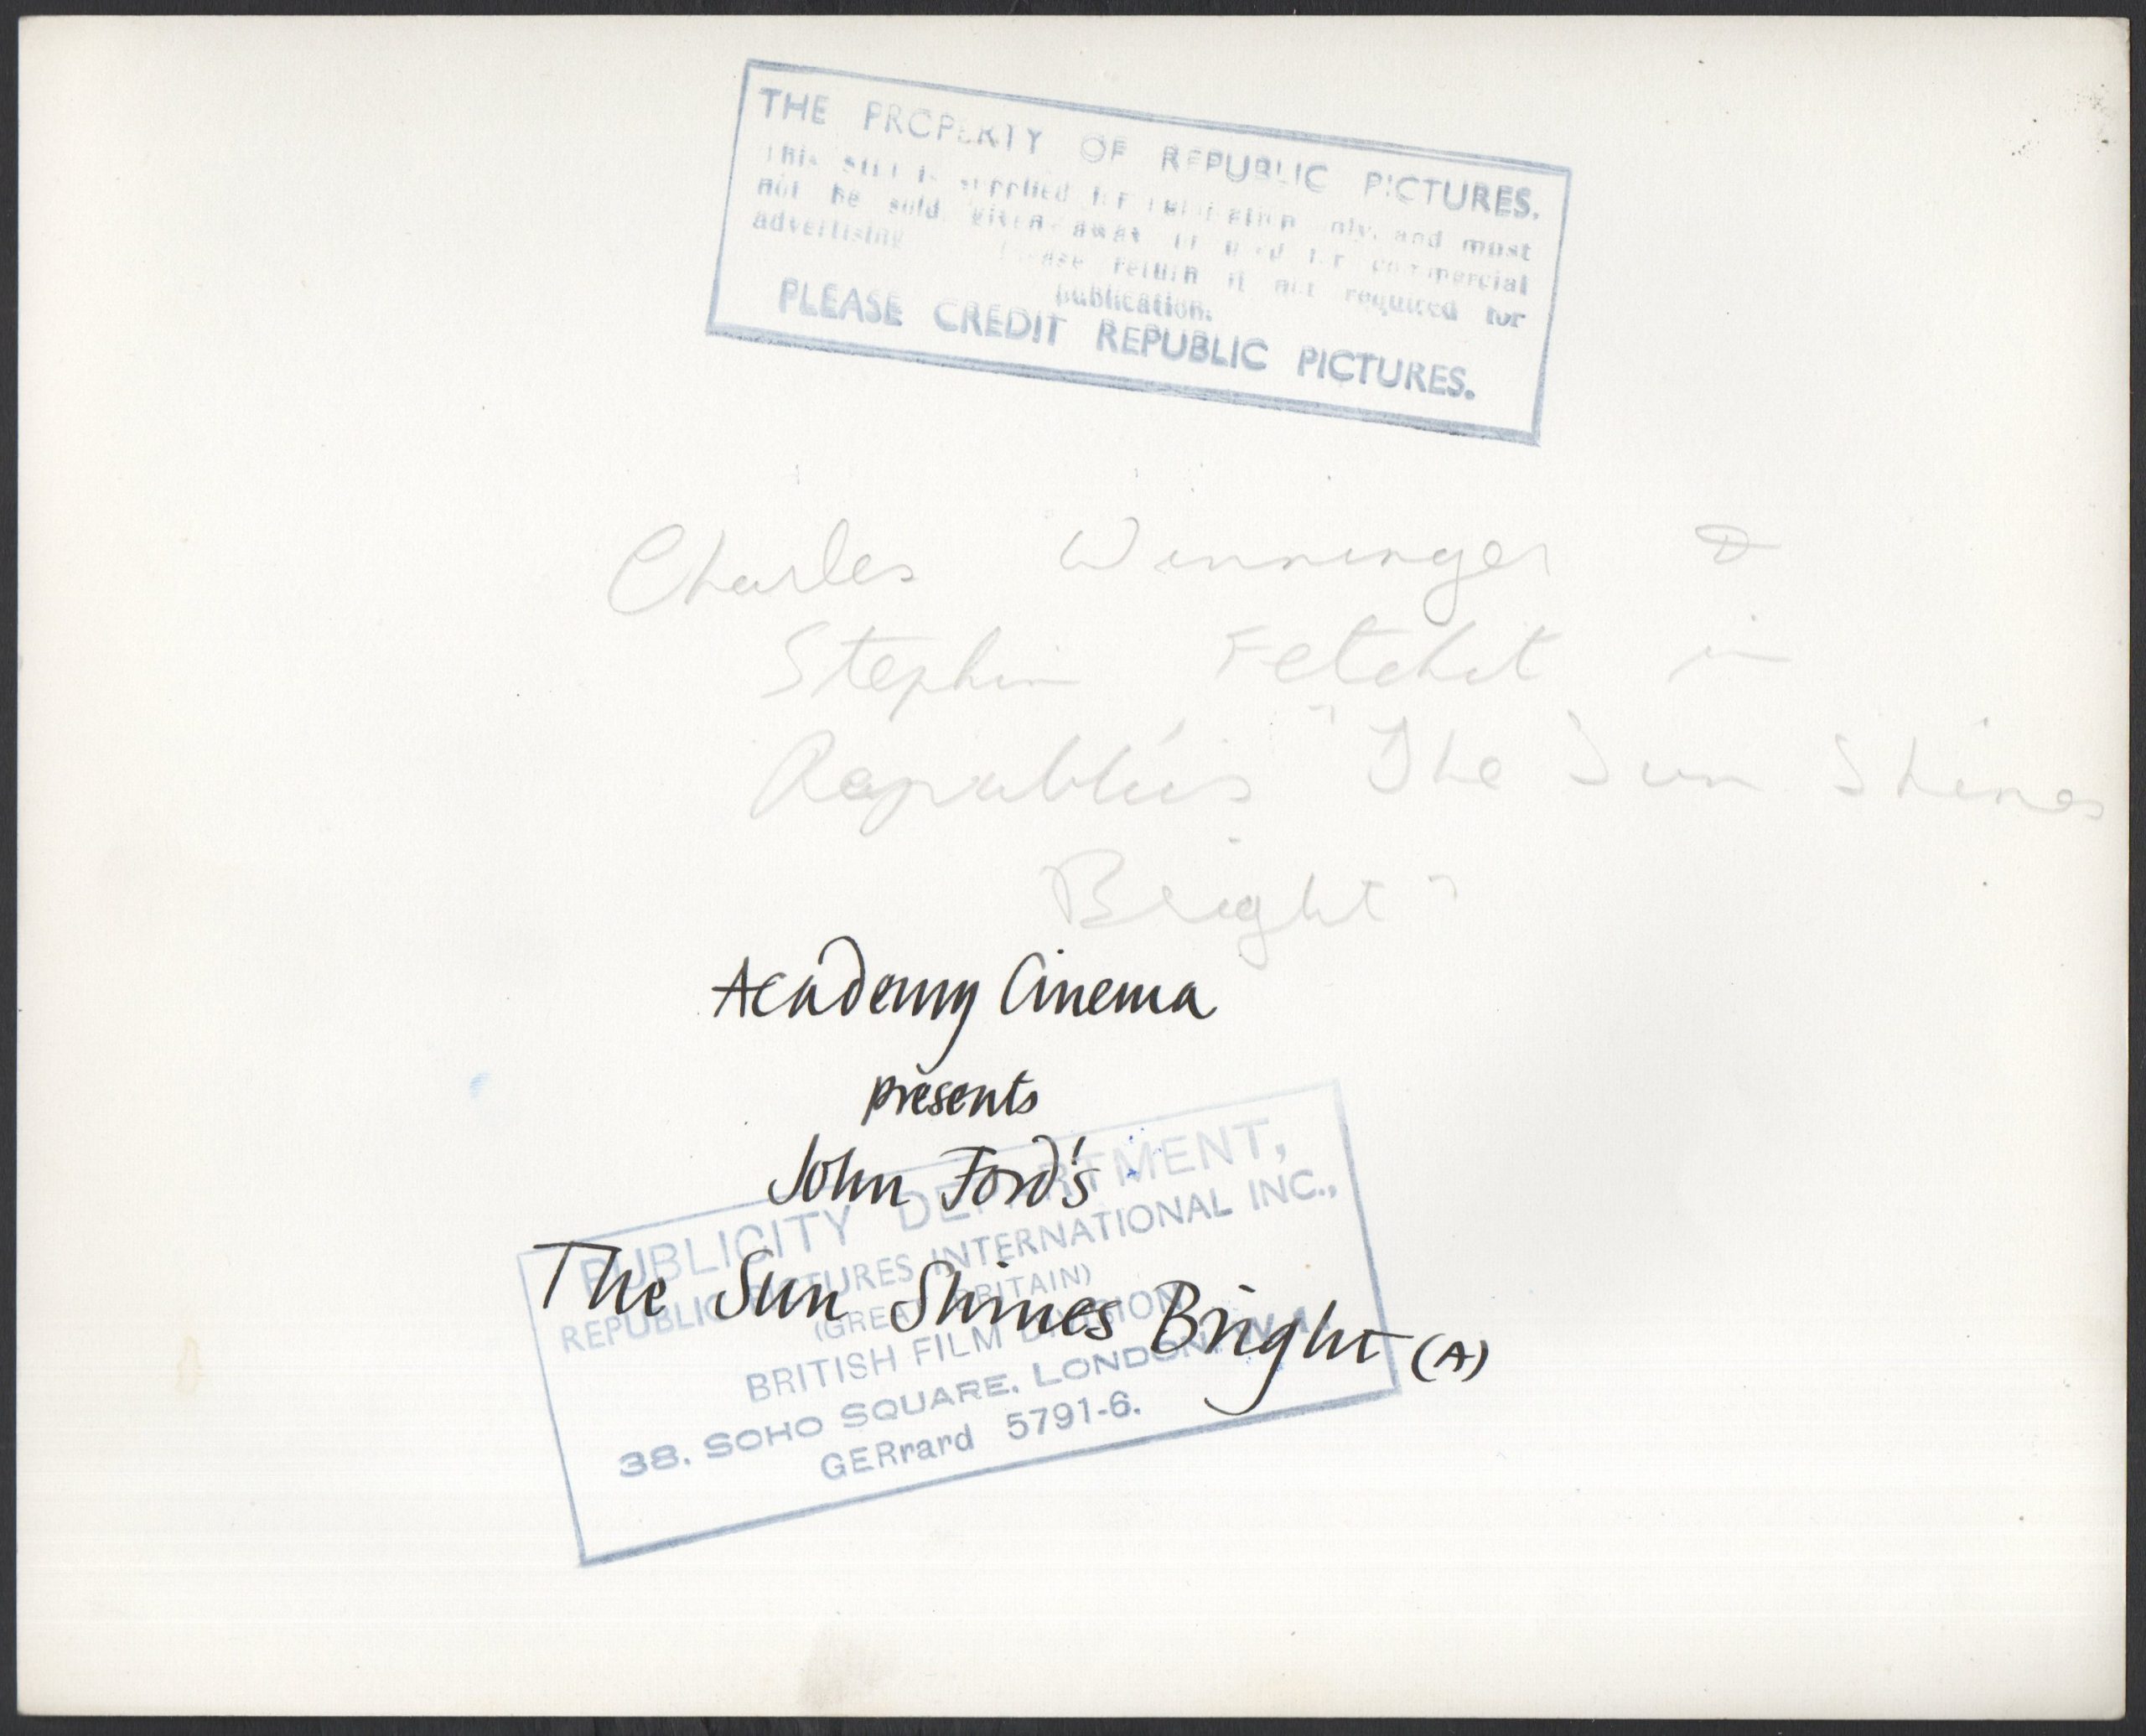 THE PROPERTY OF REPUBLIC PICTURES.
This still is supplied for publication only, and must
not be sold, given away or used for commercial
advertising. Please return if not required for
publication.
PLEASE CREDIT REPUBLIC PICTURES.
Charles Winninger &
Stephin Fetchit in
Republic's "The Sun Shines
Bright"
Academy Cinema
presents
John Ford's
The Sun Shines Bright (A)
PUBLICITY DEPARTMENT,
REPUBLIC PICTURES INTERNATIONAL INC.,
(GREAT BRITAIN)
BRITISH FILM DIVISION
38, SOHO SQUARE, LONDON, W.1.
GERrard 5791-6.